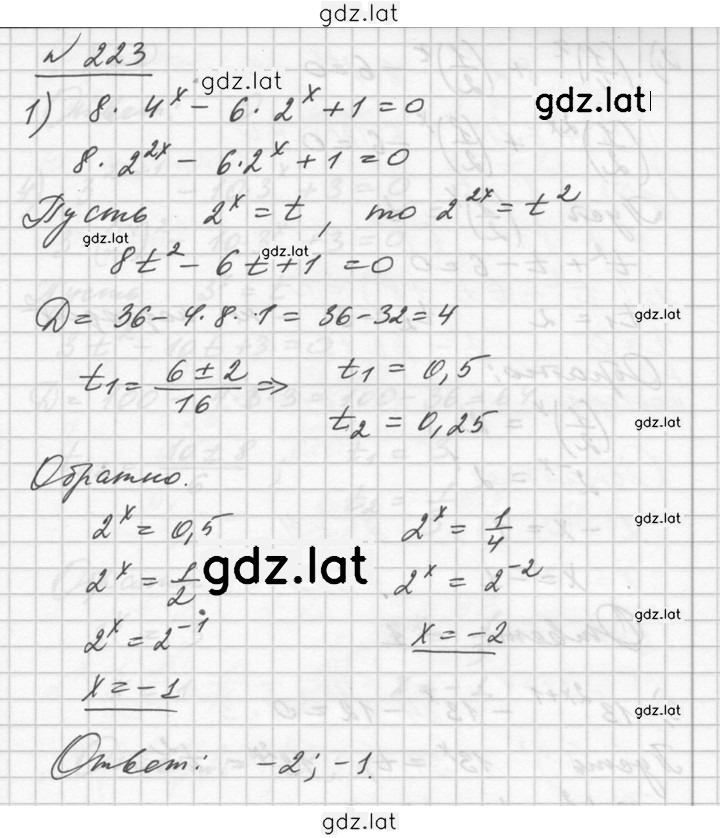 gdz.lat
№ 223
gdz.lat
1) 8 · 4^x − 6 · 2^x + 1 = 0
gdz.lat
8 · 2^{2x} − 6 · 2^x + 1 = 0
Пусть 2^x = t, то 2^{2x} = t^2
gdz.lat
gdz.lat
8t^2 − 6t + 1 = 0
D = 36 − 4 · 8 · 1 = 36 − 32 = 4
gdz.lat
t_1 = (6 ± 2)/16 ⇒ t_1 = 0,5
t_2 = 0,25
gdz.lat
Обратно.
2^x = 0,5 2^x = 1/4
gdz.lat
2^x = 1/2 2^x = 2^{−2}
gdz.lat
gdz.lat
2^x = 2^{−1} x = −2
gdz.lat
x = −1
gdz.lat
Ответ: −2; −1.
gdz.lat